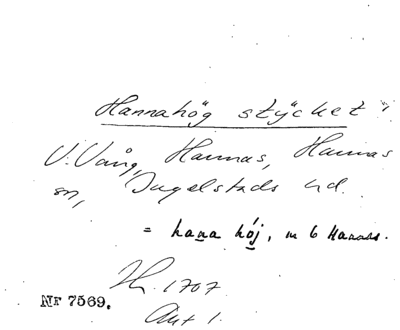 Hannahög stycket
V. Vång, Hannas, Hannas
sn, Ingelstads hd.
= hana höj, nr 6 Hannas.
1707
Akt 1.
NF 7569.